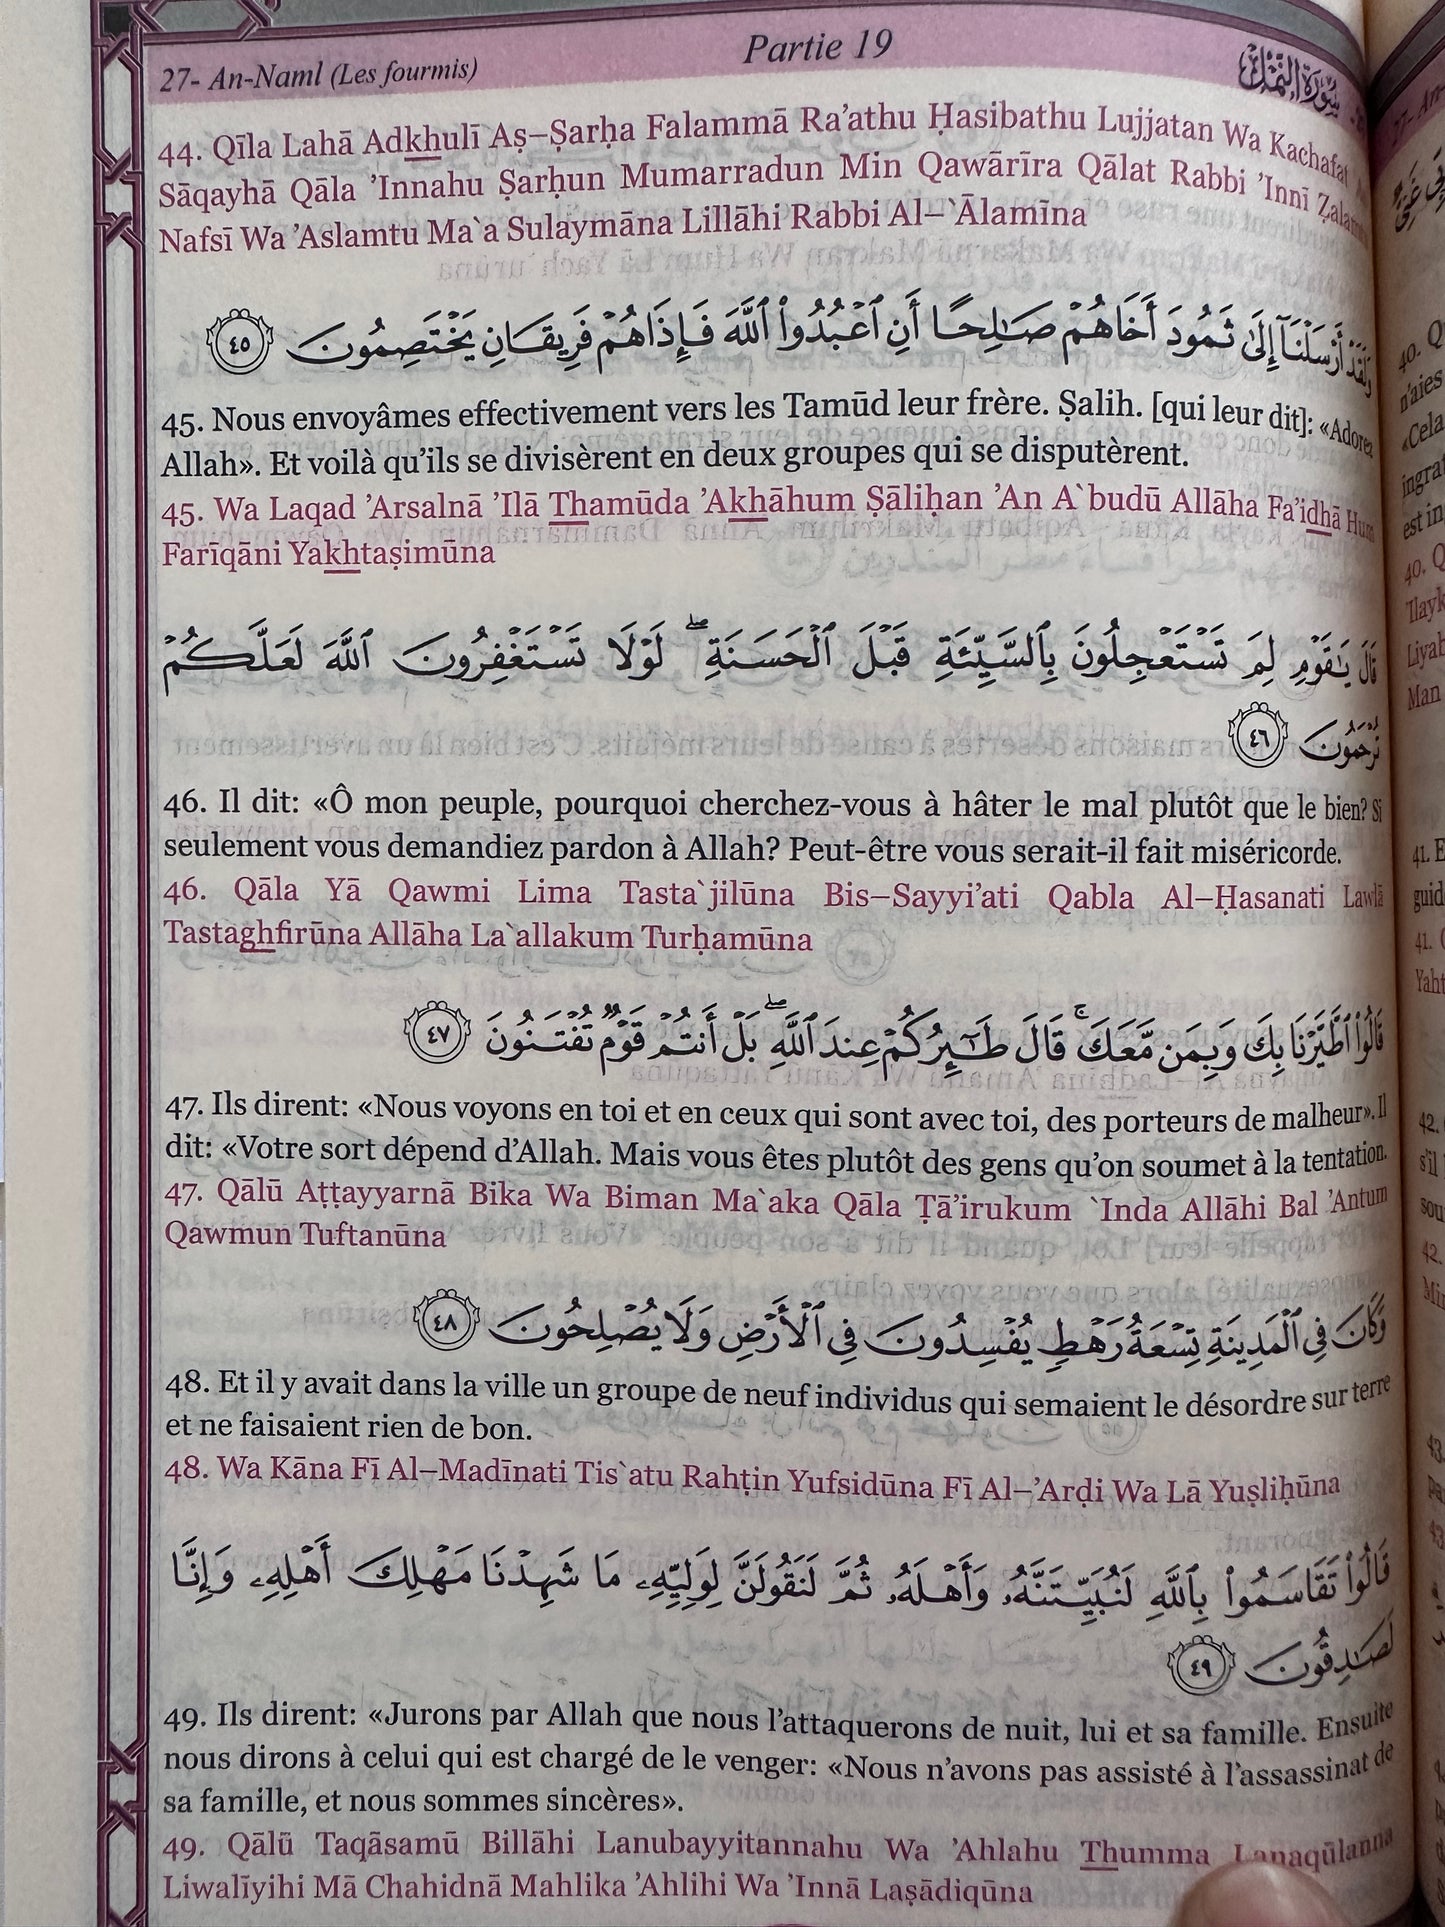 27- An-Naml (Les fourmis) Partie 19 سُورَةُ النَّمْلِ
44. Qīla Lahā Adkhulī Aṣ–Ṣarḥa Falammā Ra’athu Ḥasibathu Lujjatan Wa Kachafat
Sāqayhā Qāla ’Innahu Ṣarḥun Mumarradun Min Qawārīra Qālat Rabbi ’Innī Ẓalamtu
Nafsī Wa ’Aslamtu Ma`a Sulaymāna Lillāhi Rabbi Al–`Ālamīna
وَلَقَدْ أَرْسَلْنَآ إِلَىٰ ثَمُودَ أَخَاهُمْ صَٰلِحًا أَنِ ٱعْبُدُوا۟ ٱللَّهَ فَإِذَا هُمْ فَرِيقَانِ يَخْتَصِمُونَ ٤٥
45. Nous envoyâmes effectivement vers les Tamūd leur frère. Ṣalih. [qui leur dit]: «Adorez
Allah». Et voilà qu’ils se divisèrent en deux groupes qui se disputèrent.
45. Wa Laqad ’Arsalnā ’Ilā Thamūda ’Akhāhum Ṣāliḥan ’An A`budū Allāha Fa’idhā Hum
Farīqāni Yakhtaṣimūna
قَالَ يَٰقَوْمِ لِمَ تَسْتَعْجِلُونَ بِٱلسَّيِّئَةِ قَبْلَ ٱلْحَسَنَةِ ۖ لَوْلَا تَسْتَغْفِرُونَ ٱللَّهَ لَعَلَّكُمْ
تُرْحَمُونَ ٤٦
46. Il dit: «Ô mon peuple, pourquoi cherchez-vous à hâter le mal plutôt que le bien? Si
seulement vous demandiez pardon à Allah? Peut-être vous serait-il fait miséricorde.
46. Qāla Yā Qawmi Lima Tasta`jilūna Bis–Sayyi’ati Qabla Al–Ḥasanati Lawlā
Tastaghfirūna Allāha La`allakum Turḥamūna
قَالُوا۟ ٱطَّيَّرْنَا بِكَ وَبِمَن مَّعَكَ ۚ قَالَ طَٰٓئِرُكُمْ عِندَ ٱللَّهِ ۖ بَلْ أَنتُمْ قَوْمٌ تُفْتَنُونَ ٤٧
47. Ils dirent: «Nous voyons en toi et en ceux qui sont avec toi, des porteurs de malheur». Il
dit: «Votre sort dépend d’Allah. Mais vous êtes plutôt des gens qu’on soumet à la tentation.
47. Qālū Aṭṭayyarnā Bika Wa Biman Ma`aka Qāla Ṭā’irukum `Inda Allāhi Bal ’Antum
Qawmun Tuftanūna
وَكَانَ فِى ٱلْمَدِينَةِ تِسْعَةُ رَهْطٍ يُفْسِدُونَ فِى ٱلْأَرْضِ وَلَا يُصْلِحُونَ ٤٨
48. Et il y avait dans la ville un groupe de neuf individus qui semaient le désordre sur terre
et ne faisaient rien de bon.
48. Wa Kāna Fī Al–Madīnati Tis`atu Rahṭin Yufsidūna Fī Al–’Arḍi Wa Lā Yuṣliḥūna
قَالُوا۟ تَقَاسَمُوا۟ بِٱللَّهِ لَنُبَيِّتَنَّهُۥ وَأَهْلَهُۥ ثُمَّ لَنَقُولَنَّ لِوَلِيِّهِۦ مَا شَهِدْنَا مَهْلِكَ أَهْلِهِۦ وَإِنَّا
لَصَٰدِقُونَ ٤٩
49. Ils dirent: «Jurons par Allah que nous l’attaquerons de nuit, lui et sa famille. Ensuite
nous dirons à celui qui est chargé de le venger: «Nous n’avons pas assisté à l’assassinat de
sa famille, et nous sommes sincères».
49. Qālū Taqāsamū Billāhi Lanubayyitannahu Wa ’Ahlahu Thumma Lanaqūlanna
Liwalīyihi Mā Chahidnā Mahlika ’Ahlihi Wa ’Innā Laṣādiqūna